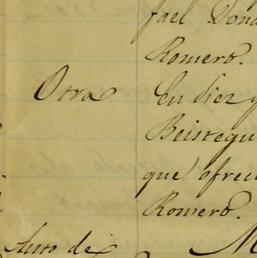 fael Dond
Romero.
Otra
En diez y
Beistegu
que ofrec
Romero.
Auto de
M